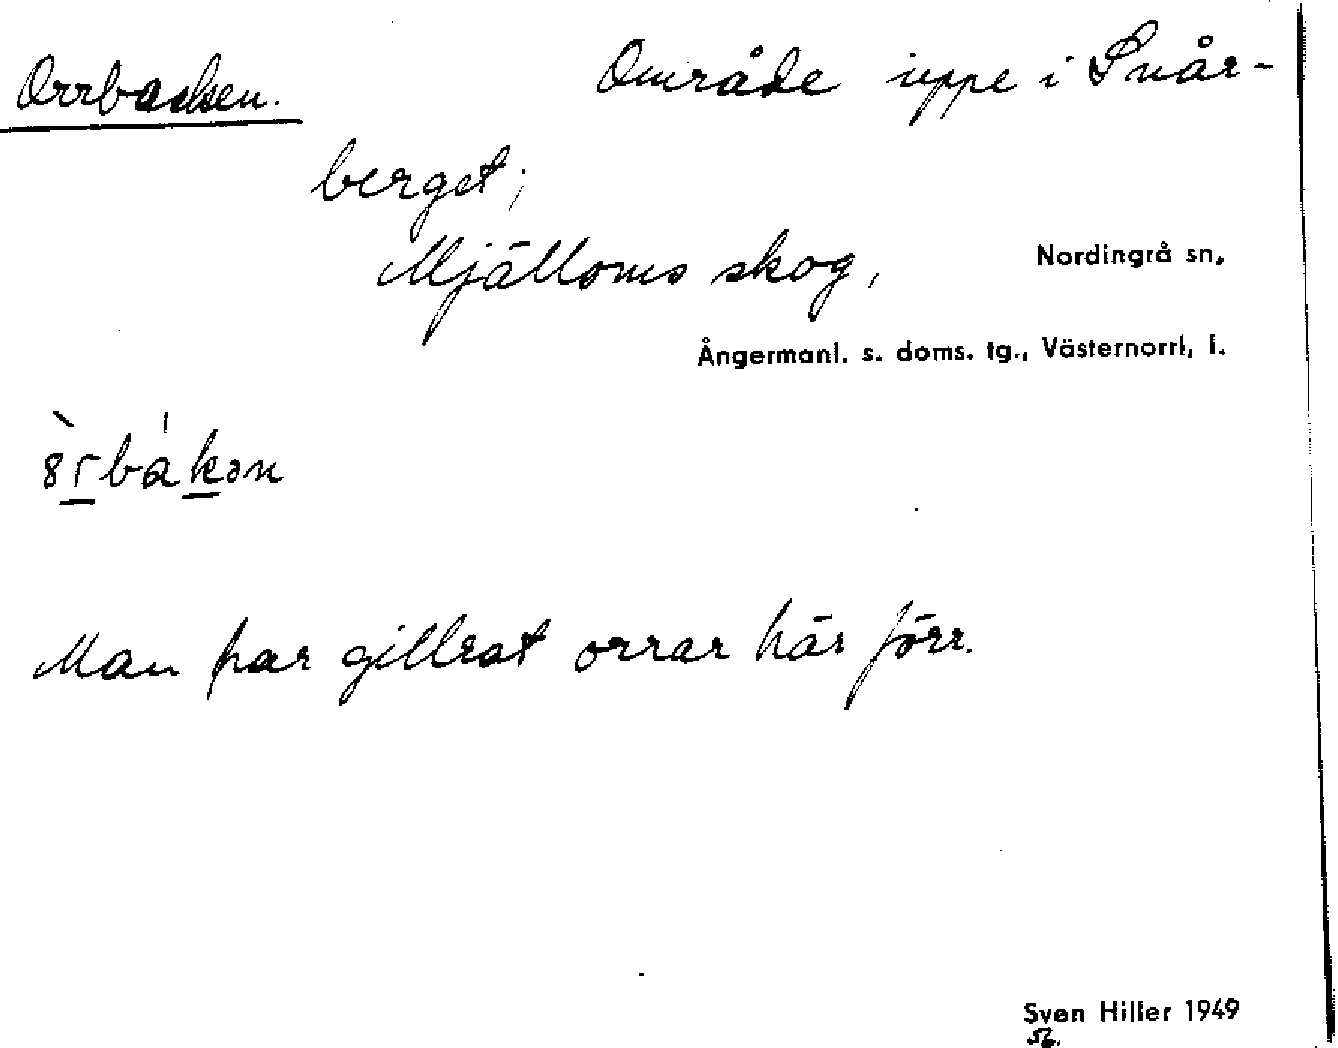 Orrbacken. Område uppe i Snår-
berget;
Mjälloms skog, Nordingrå sn,
Ångermanl. s. doms. tg., Västernorrl, l.
Man har gillrat orrar här förr.
Sven Hiller 1949
56.